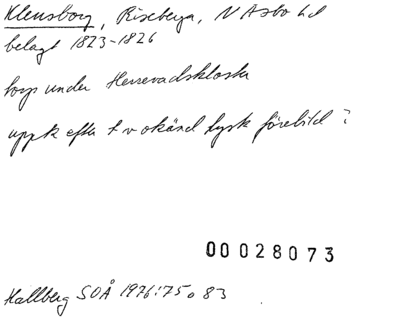 Klensborg, Riseberga, N Åsbo hd
belagt 1823-1826
torp under Herrevadskloster
uppk efter t v okänd tysk förebild?
00028073
Hallberg SOÅ 1976:75 o 83